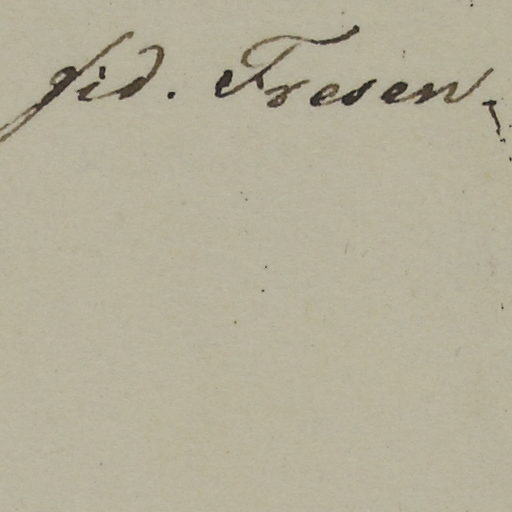 fid. Fresen.